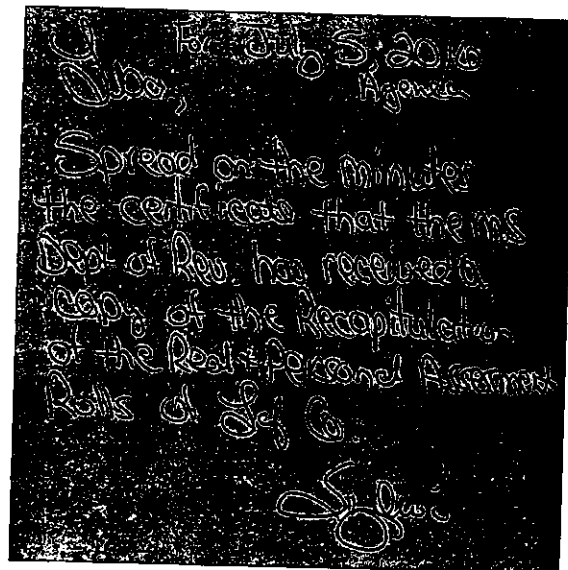 For July 5, 2016
Agenda
Spread on the minutes
the certificate that the MS
Dept of Rev. has received a
copy of the Recapitulation
of the Real & Personal Assessment
Rolls of Laf Co.